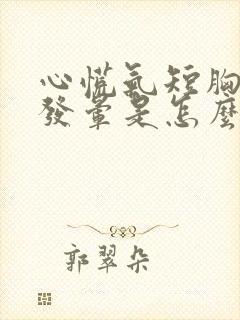 心慌氣短胸
發暈是怎麼
郭翠朵